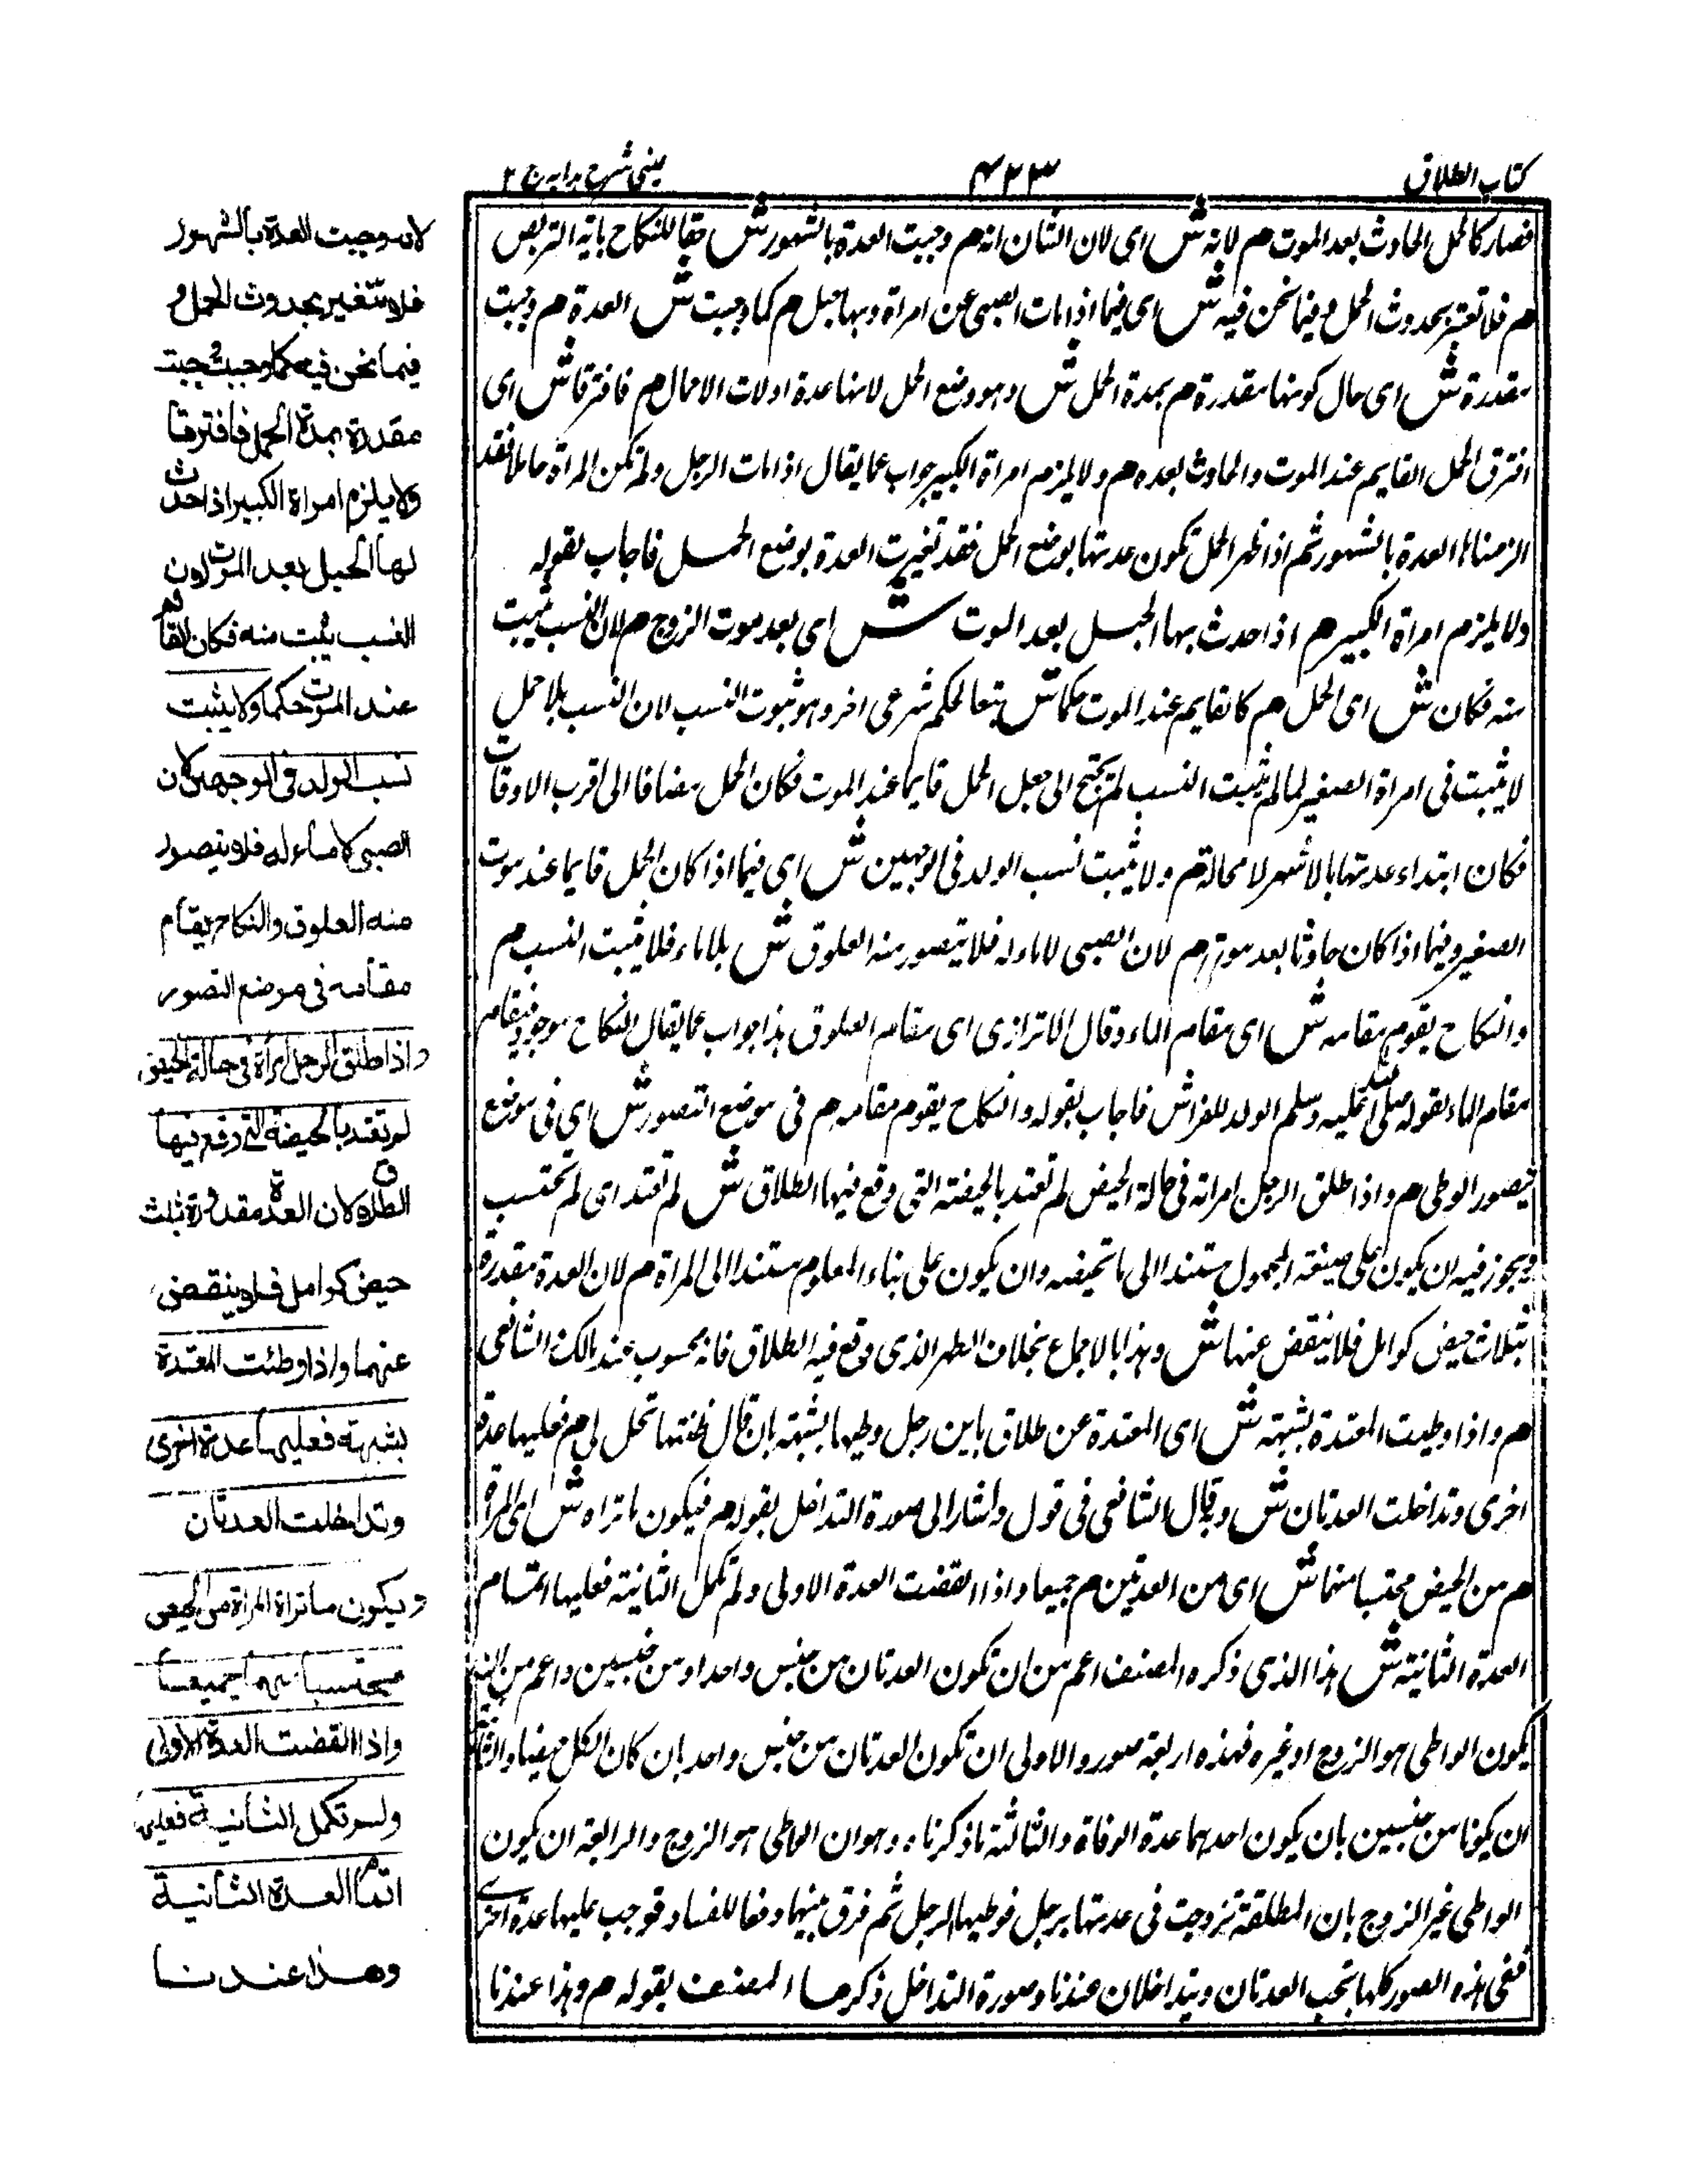 كتاب الطلاق
٤٢٣
عينى شرح هدايه ج ٢
فصار كالحمل الحادث بعد الموت م لانه ش اى لان الشان انه م وجبت العدة بالشهور ش حقا للنكاح باية التربص
م فلا تتغير بحدوث الحمل وفيما نحن فيه ش اى فيما اذا مات الصبى عن امراة وبها حبل م كما وجبت ش العدة م وجبت
مقدرة ش اى حال كونها مقدرة م بمدة الحمل ش وهو وضع الحمل لانها عدة اولات الاحمال م فافترقا ش اى
افترق الحمل القايم عند الموت والحادث بعده م ولا يلزم امراة الكبير جواب عما يقال اذا مات الرجل ولم تكن المراة حاملا فقد
الزمناها العدة بالشهور ثم اذا ظهر الحمل تكون عدتها بوضع الحمل فقد تغيرت العدة بوضع الحمل فاجاب بقوله
ولا يلزم امراة الكبير م اذا حدث بها الحبل بعد الموت ش اى بعد موت الزوج م لان النسب يثبت
منه فكان ش اى الحمل م كالقايم عند الموت حكما ش تبعا لحكم شرعى اخر وهو ثبوت النسب لان النسب بلا حمل
لا يثبت فى امراة الصغير لما لم يثبت النسب لم يحتج الى جعل الحمل قايما عند الموت فكان الحمل مضافا الى اقرب الاوقات
فكان ابتداء عدتها بالاشهر لا محالة م ولا يثبت نسب الولد فى الوجهين ش اى فيما اذا كان الحمل قايما عند موت
الصغير وفيما اذا كان حادثا بعد موته م لان الصبى لا ماء له فلا يتصور منه العلوق ش بلا ماء فلا يثبت النسب م
والنكاح يقوم مقامه ش اى مقام الماء وقال الاترازى اى مقام العلوق هذا جواب عما يقال النكاح موجود فيقام
مقام الماء لقوله صلى الله عليه وسلم الولد للفراش فاجاب بقوله والنكاح يقوم مقامه م فى موضع التصور ش اى فى موضع
تيصور الوطى م واذا طلق الرجل امراته فى حالة الحيض لم تعتد بالحيضة التى وقع فيها الطلاق ش لم تعتد اى لم تحتسب
ويجوز فيه ان يكون على صيغة المجهول مستندا الى ما تحيضه وان يكون على بناء المعلوم مستندا الى المراة م لان العدة مقدرة
بثلاث حيض كوامل فلا ينقص عنها ش وهذا بالاجماع بخلاف الطهر الذى وقع فيه الطلاق فانه محسوب عند مالك الشافعى
م واذا وطيت المعتدة بشبهة ش اى المعتدة عن طلاق باين رجل وطيها بشبهة بان قال ظننتها تحل لى م فعليها عدة
اخرى وتداخلت العدتان ش وقال الشافعى فى قول واشار الى صورة التداخل بقوله م فيكون ما تراه ش اى المراة
م من الحيض محتسبا منهما ش اى من العدتين م جميعا واذا انقضت العدة الاولى ولم تكمل الثانية فعليها اتمام
العدة الثانية ش هذا الذى ذكره المصنف اعم من ان تكون العدتان من جنس واحد او من جنسين واعم من ان
يكون الواطى هو الزوج او غيره فهذه اربعة صور والاولى ان تكون العدتان من جنس واحد بان كان الكل حيضا والثانية
ان يكونا من جنسين بان يكون احدهما عدة الوفاة والثالثة ما ذكرناه وهو ان الواطى هو الزوج والرابعة ان يكون
الواطى غير الزوج بان المطلقة تزوجت فى عدتها برجل فوطيها الرجل ثم فرق بينهما دفعا للفساد فوجب عليها عدة اخرى
ففى هذه الصور كلها تجب العدتان ويتداخلان عندنا وصورة التداخل ذكرها المصنف بقوله م وهذا عندنا
لانه وجبت العدة بالشهور
فلا تتغير بحدوث الحمل و
فيما نحن فيه كما وجبت وجبت
مقدرة بمدة الحمل فافترقا
ولا يلزم امراة الكبير اذا حدث
لها الحبل بعد الموت لان
النسب يثبت منه فكان كالقائم
عند الموت حكما ولا يثبت
نسب الولد فى الوجهين لان
الصبى لا ماء له فلا يتصور
منه العلوق والنكاح يقام
مقامه فى موضع التصور
واذا طلق الرجل امرأة فى حالة الحيض
لم تعتد بالحيضة التى وقع فيها
الطلاق لان العدة مقدرة بثلث
حيض كوامل فلا ينقص
عنهما واذا وطئت المعتدة
بشبهة فعليها عدة اخرى
وتداخلت العدتان
ويكون ما تراه المراة من الحيض
محتسبا منهما جميعا
واذا انقضت العدة الاولى
ولم تكمل الثانية فعليها
اتمام العدة الثانية
وهذا عندنا